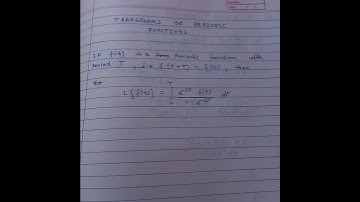 TRANSFORMS OF PERIODIC
FUNCTIONS
If f(t) is a Periodic function with
period T, i.e f(t+T) = f(t), then
L{f(t)} = ∫₀ᵀ e⁻ˢᵗ f(t) / 1 - e⁻ˢᵀ dt